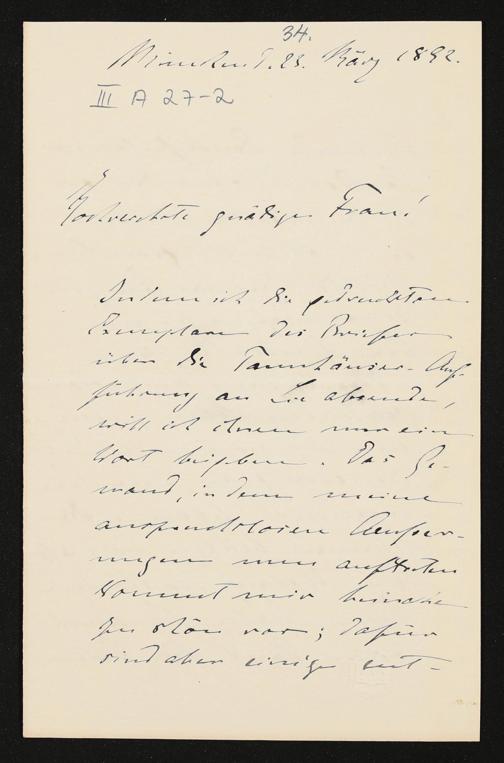 34.
München d. 23. März 1892.
III A 27-2
Hochverehrte gnädige Frau!
Indem ich die gedruckten
Exemplare des Briefes
über die Tannhäuser-Auf-
führung an Sie absende,
will ich ihnen nur ein
Wort beigeben. Das Ge-
wand, in dem meine
anspruchslosen Äusser-
ungen nun auftreten
kommt mir beinahe
zu schön vor; dafür
sind aber einige ent-